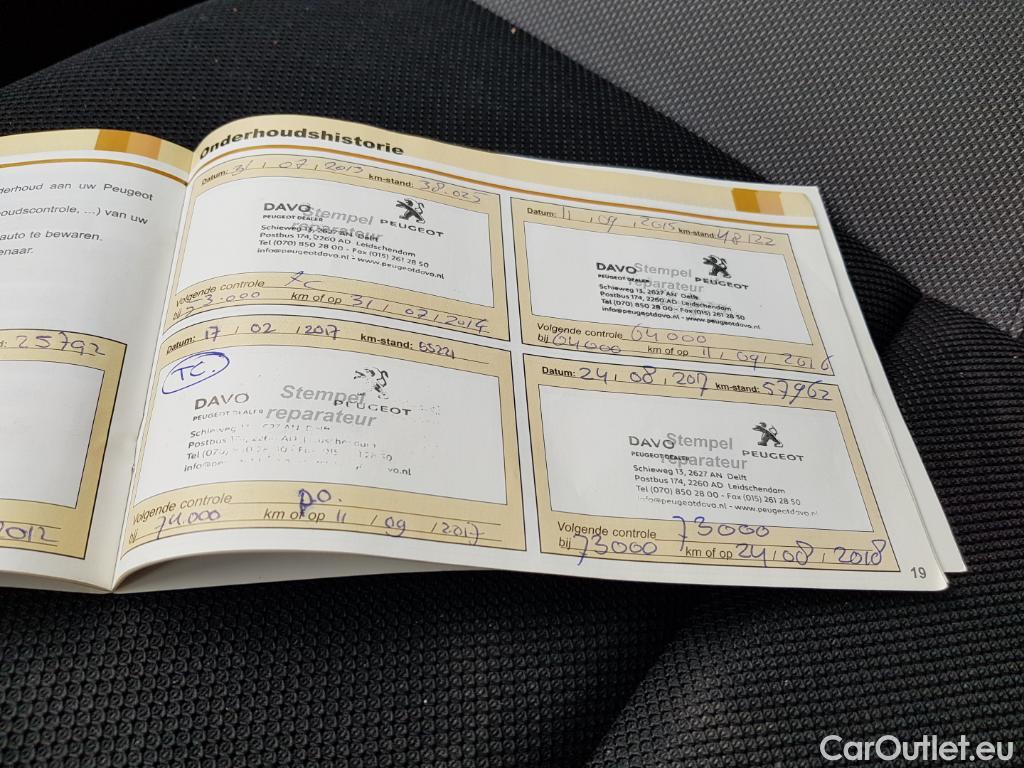 derhoud aan uw Peugeot
oudscontrole, ...) van uw
auto te bewaren.
enaar.
25792
2012
Onderhoudshistorie
Datum: 31, 07, 2013 km-stand: 38.025
Stempel
reparateur
DAVO
PEUGEOT DEALER
PEUGEOT
Schieweg 13, 2627 AN Delft
Postbus 174, 2260 AD Leidschendam
Tel (070) 850 28 00 - Fax (015) 261 28 50
info@peugeotdavo.nl - www.peugeotdavo.nl
Volgende controle
bij 53.000 km of op 31, 07, 2014
Datum: 11, 09, 2015 km-stand: 48122
Stempel
reparateur
DAVO
PEUGEOT DEALER
PEUGEOT
Schieweg 13, 2627 AN Delft
Postbus 174, 2260 AD Leidschendam
Tel (070) 850 28 00 - Fax (015) 261 28 50
info@peugeotdavo.nl - www.peugeotdavo.nl
Volgende controle 64000
bij 64000 km of op 11, 09, 2016
Datum: 17, 02, 2017 km-stand: 55221
TC.
Stempel
reparateur
DAVO
PEUGEOT DEALER
PEUGEOT
Volgende controle p.o.
bij 74.000 km of op 11, 09, 2017
Datum: 24, 08, 2017 km-stand: 57962
Stempel
reparateur
DAVO
PEUGEOT DEALER
PEUGEOT
Schieweg 13, 2627 AN Delft
Postbus 174, 2260 AD Leidschendam
Tel (070) 850 28 00 - Fax (015) 261 28 50
info@peugeotdavo.nl - www.peugeotdavo.nl
Volgende controle 73000
bij 73000 km of op 24, 08, 2018
19
CarOutlet.eu